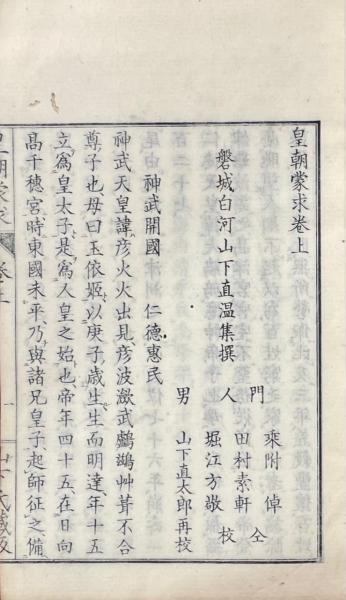 皇朝蒙求卷上
磐城白河山下直温集撰
門 乘附倬 仝
田村素軒
人 堀江方敬 校
男 山下直太郎再校
神武開國 仁德惠民
神武天皇諱彥火火出見彥波瀲武鸕鷀艸葺不合
尊子也母曰玉依姬以庚子歲生生而明達年十五
立爲皇太子是爲人皇之始也帝年四十五在日向
高千穗宮時東國未平乃與諸兄皇子起師征之備
皇朝蒙求 卷上 一